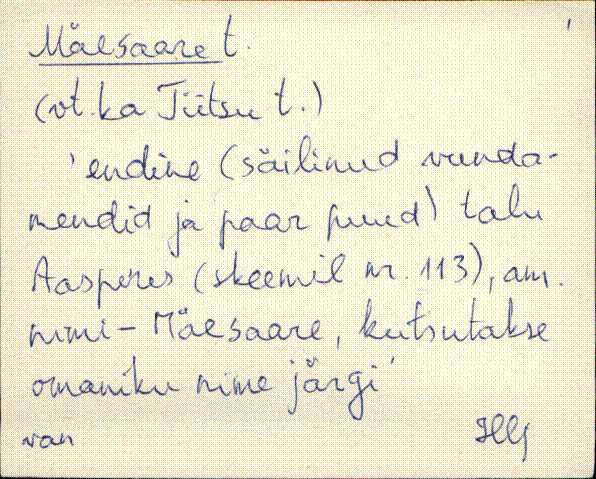 Mäesaare t.
(vt. ka Tiitsu t.)
'endine (säilinud vunda-
mendid ja paar puud) talu
Aasperes (skeemil nr. 113), am.
nimi - Mäesaare, kutsutakse
omaniku nime järgi'
van